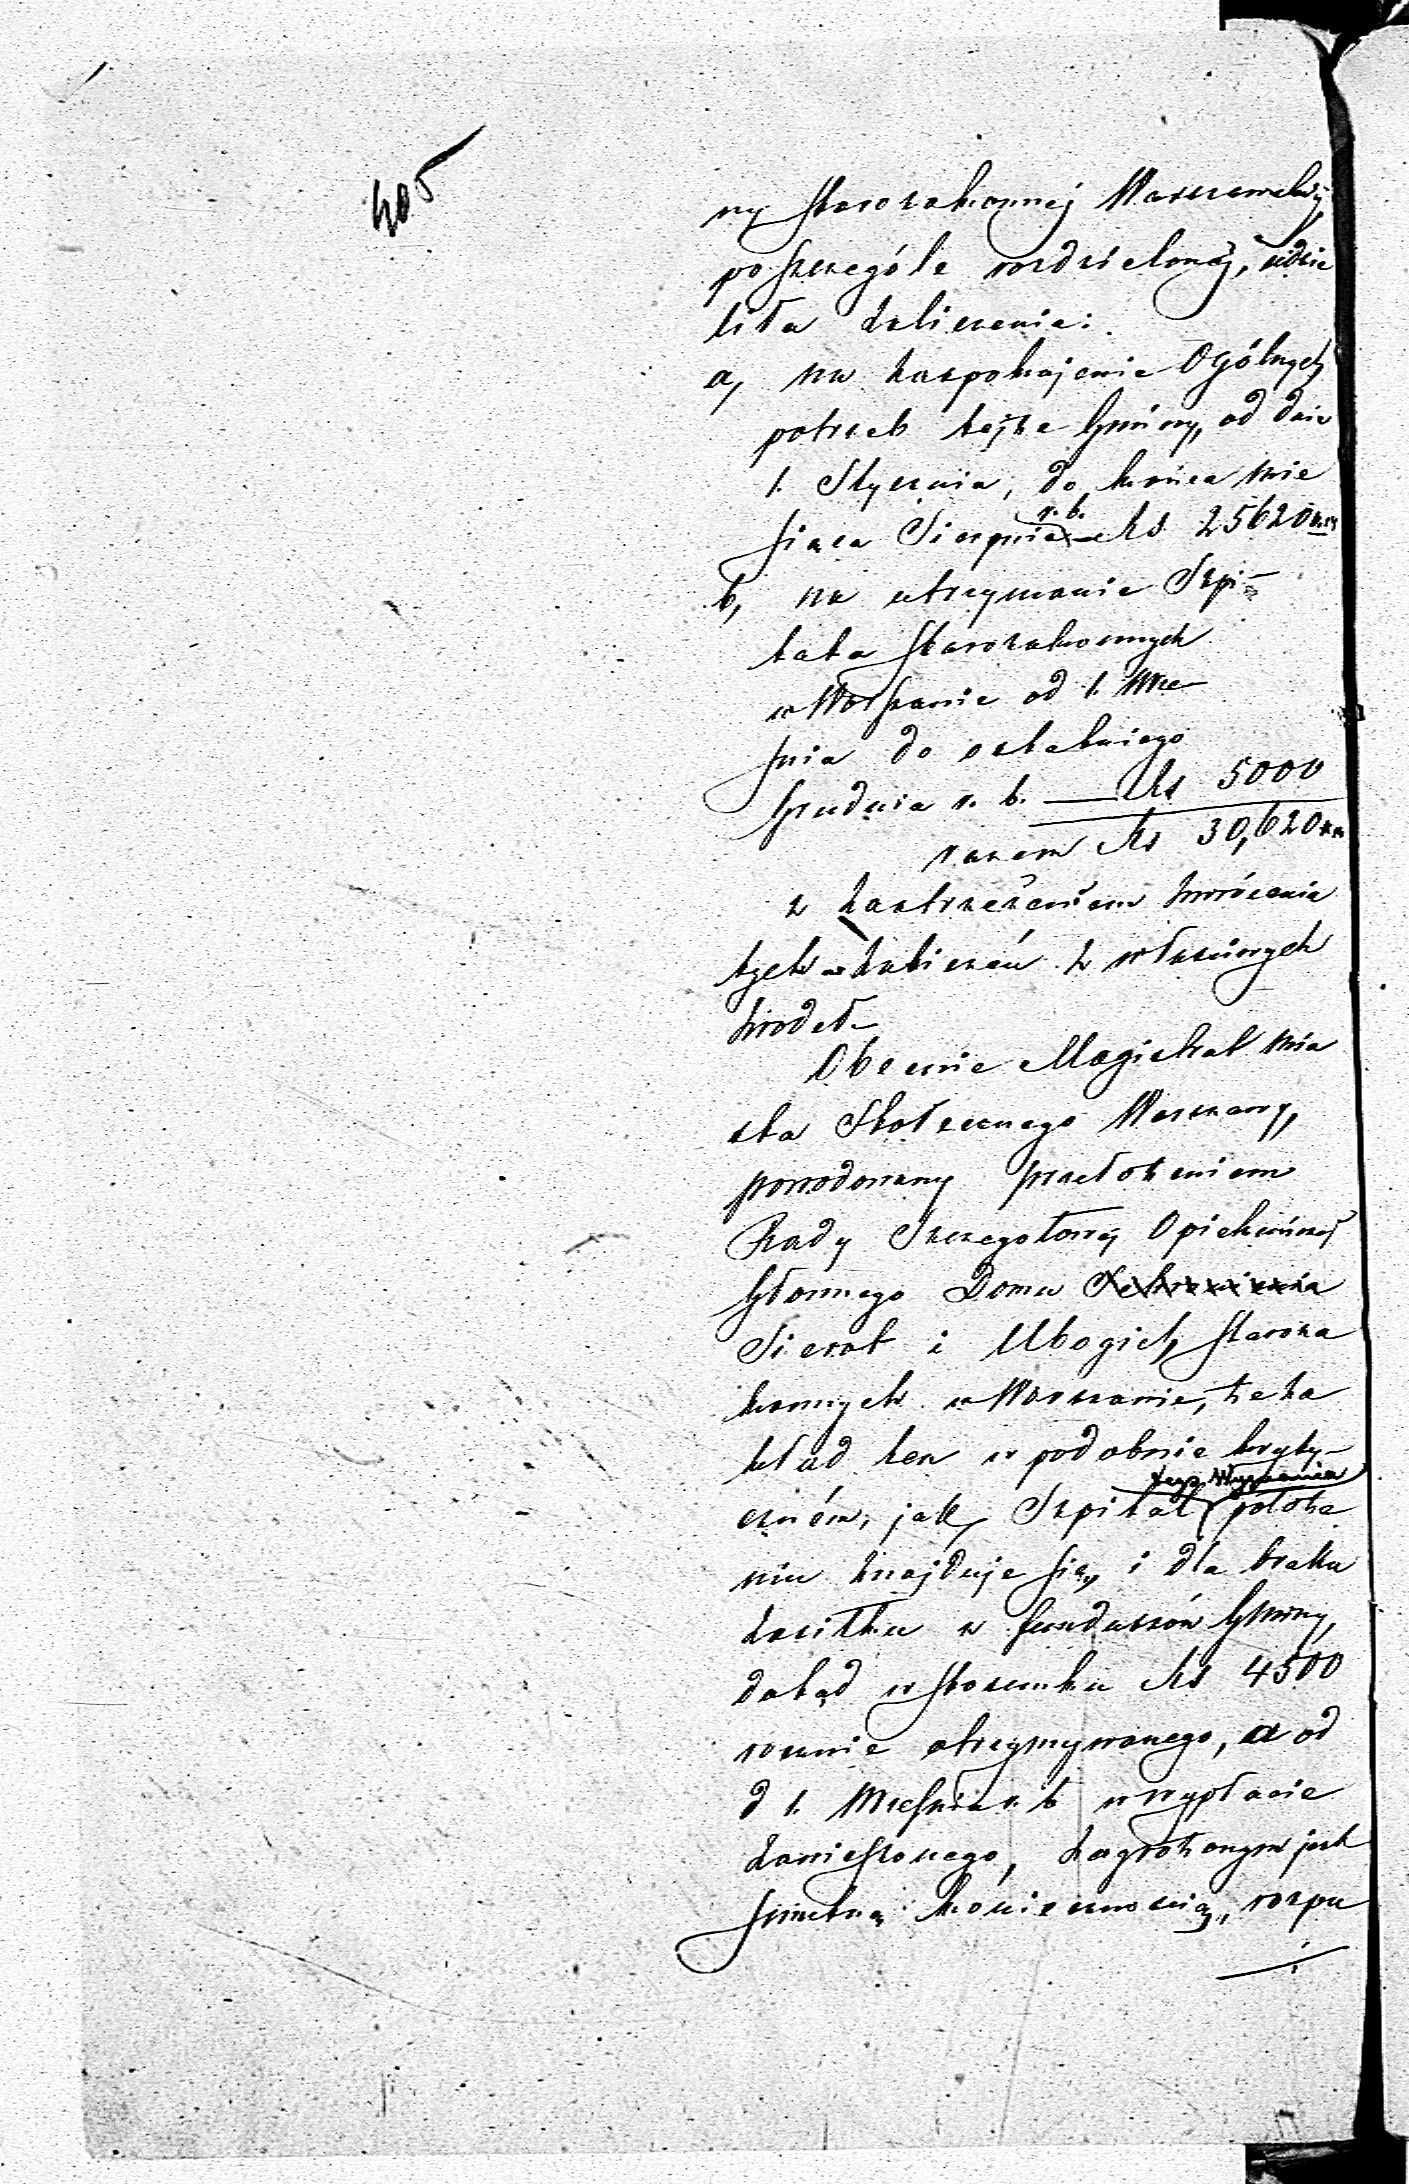 405
ny Starozakonnej Warszawskiej
poszczególe rozdzielonej, udzie
liła zaliczenia:
a, na zaspokojenie Ogólnych
potrzeb tejże Gminy, od dnia
1. Stycznia, do końca mie
siąca Sierpnia r. b. Rs 25620
b, na utrzymanie Szpi-
tala Starozakonnych
w Warszawie od 1. Wrze-
śnia do ostatniego
Grudnia r. b. — Rs 5000
razem Rs 30,620
z zastrzeżeniem zwrócenia
tych zaliczeń z właściwych
źrodeł—
Obecnie Magistrat mia
sta Stołecznego Warszawy,
powodowany przełożeniem
Rady Szczegołowej Opiekuńczej
Głownego Domu
Sierot i Ubogich, Staroza
konnych w Warszawie, że za
kład ten w podobnie kryty-
czném, jak Szpital tegoż Wyznania położe
niu znajduje się, i dla braku
zasiłku z funduszów Gminy,
dotąd w stosunku Rs 4500
rocznie otrzymywanego, a od
d 1. Września r. b w wypłacie
zawieszonego, zagrożonym jest
smutną koniecznością, rozpu